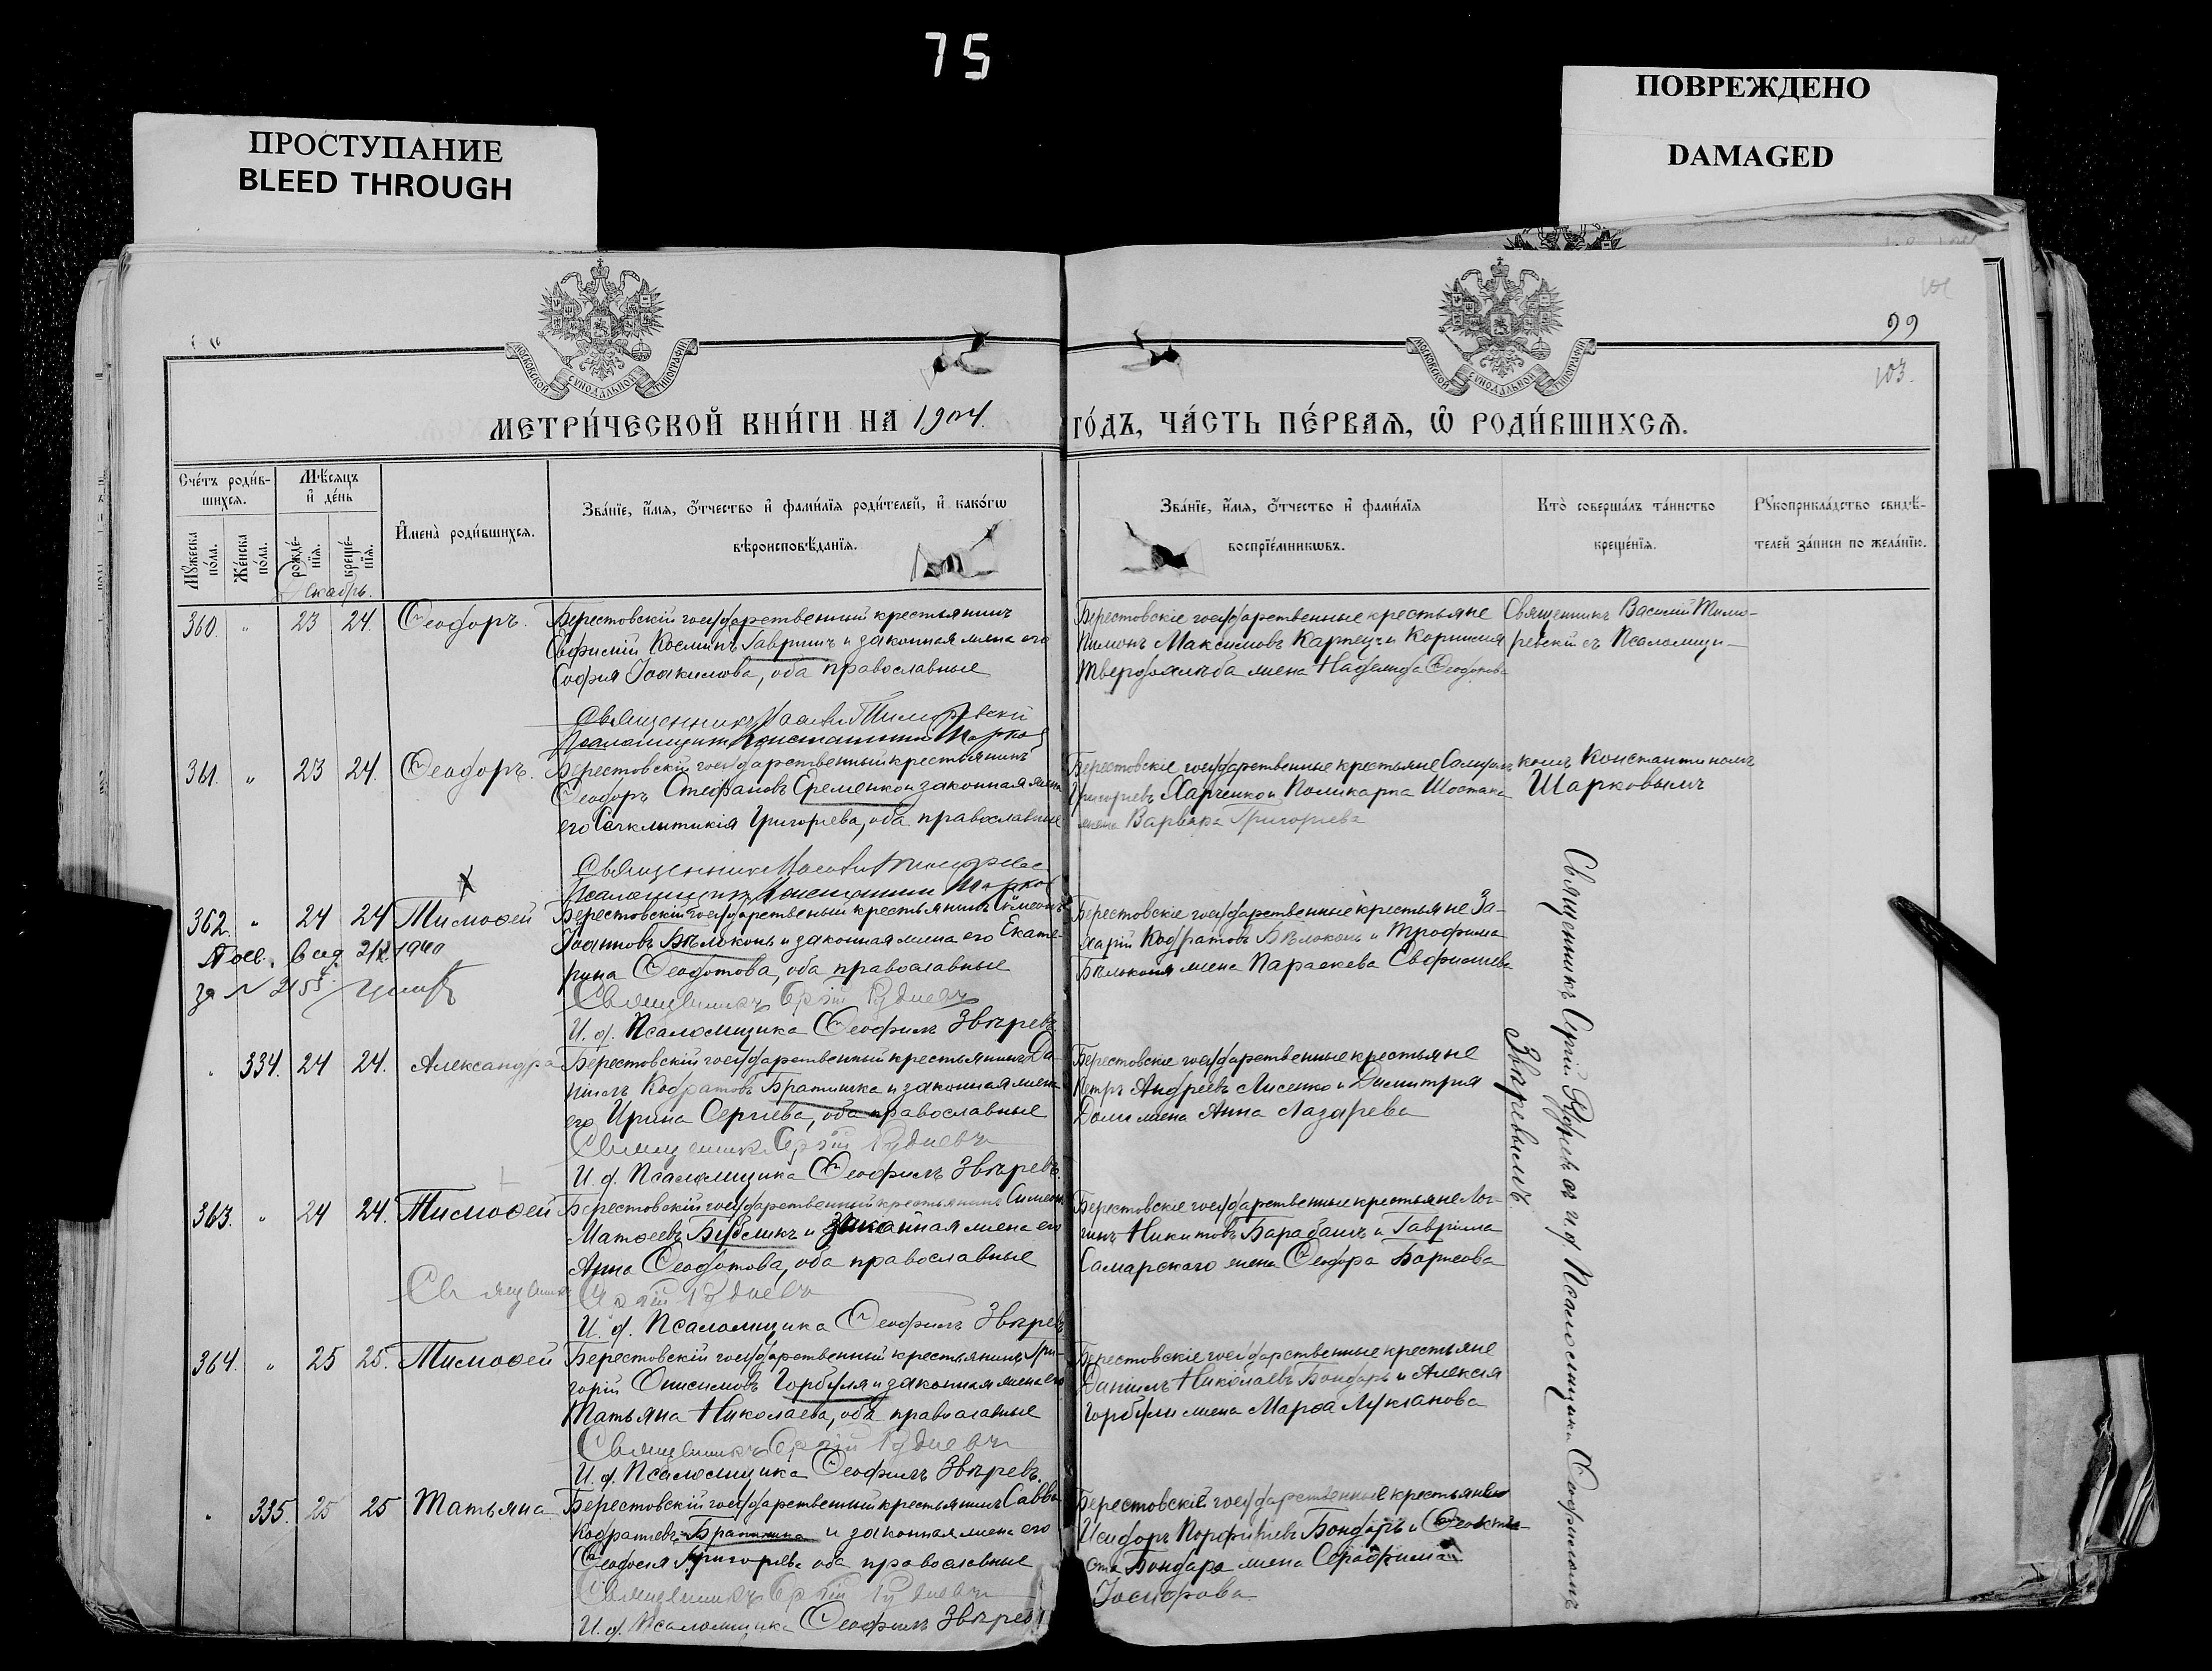 75
ПРОСТУПАНИЕ
BLEED THROUGH
ПОВРЕЖДЕНО
DAMAGED
МОСКОВСКОЙ СѴНОДАЛЬНОЙ ТИПОГРАФІИ
МОСКОВСКОЙ СѴНОДАЛЬНОЙ ТИПОГРАФІИ
99
103.
МЕТРИ́ЧЕСКОЙ КНИ́ГИ НА 1904. ГО́ДЪ, ЧА́СТЬ ПЕ́РВАѦ, Ѿ РОДИ́ВШИХСѦ.
Сче́тъ роди́в-
шихсѧ.
Мꙋ́жеска по́ла.
Же́нска по́ла.
Мѣ́сѧцъ
и҆ де́нь
рожде́-нїѧ.
креще́-нїѧ.
И҆мена̀ роди́вшихсѧ.
Зва́нїе, и҆́мѧ, ѻ҆́тчество и҆ фами́лїѧ роди́телей, и҆ како́гѡ
вѣроисповѣ́данїѧ.
Зва́нїе, и҆́мѧ, ѻ҆́тчество и҆ фами́лїѧ
воспрїе́мникѡвъ.
Кто̀ соверша́лъ та́инство
креще́нїѧ.
Рꙋкоприкла́дство свидѣ́-
телей за́писи по жела́нїю.
Декабрь.
360. " 23 24. Ѳеодоръ. Берестовскій государственный крестьянинъ
Евфимій Косминъ Гавришъ и законная жена его
София Іоакимова, оба православные
Берестовскіе государственные крестьяне
Пимонъ Максимовъ Карпецъ и Корнилия
Твердохлѣба жена Надежда Ѳеодотова
Священникъ Василій Тимо-
ревскій съ Псаломщи-
Священникъ Василій Тиморевскій
Псаломщикъ Константинъ Шарков
361. " 23 24. Ѳеодоръ. Берестовскій государственный крестьянинъ
Ѳеодоръ Стефановъ Еременко и законная жена
его Сигклитикія Григорьева, оба православные
Берестовскіе государственные крестьяне Самуилъ
Григорьевъ Харченко и Поликарпа Шостака
жена Варвара Григорьева
комъ Константиномъ
Шарковымъ
Священникъ Василій Тиморевс
Псаломщикъ Константинъ Шарков
362. " 24 24 Тимоѳей Берестовскій государственный крестьянинъ Симеонъ
Іоанновъ Бѣлоконь и законная жена его Екате-
рина Ѳеодотова, оба православные
1940
за № 2155
Берестовскіе государственные крестьяне За-
харій Кодратовъ Бѣлоконь и Трофима
Бѣлоконя жена Параскева Евфимиева
Священникъ Сергій Рудневъ
И. д. Псаломщика Ѳеофилъ Звѣревъ
" 334. 24 24. Александра Берестовскій государственный крестьянинъ Да-
ніилъ Кодратовъ Братишка и законная жена
его Ирина Сергіева, оба православные
Берестовскіе государственные крестьяне
Петръ Андреевъ Лисенко и Димитрия
жена Анна Лазарева
Священникъ Сергій Рудневъ
И. д. Псаломщика Ѳеофилъ Звѣревъ.
363. " 24 24. Тимоѳей Берестовскій государственный крестьянинъ Симеонъ
Матѳеевъ Бубликъ и законная жена его
Анна Ѳеодотова, оба православные
Берестовскіе государственные крестьяне Лог-
гинъ Никитовъ Барабашъ и Гавріила
Самарскаго жена Ѳеодора Борисова
Священникъ Сергій Рудневъ
И. д. Псаломщика Ѳеофилъ Звѣревъ
364. " 25 25. Тимоѳей Берестовскій государственный крестьянинъ Гри-
горій Онисимовъ Горбуля и законная жена его
Татьяна Николаева, оба православные
Берестовскіе государственные крестьяне
Даніилъ Николаевъ Бондарь и Алексія
Горбули жена Марѳа Лукіанова
Священникъ Сергій Рудневъ
И. д. Псаломщика Ѳеофилъ Звѣревъ.
" 335. 25 25 Татьяна Берестовскій государственный крестьянинъ Савва
Кодратьевъ Братишка и законная жена его
Ѳеодосія Григорьева оба православные
Берестовскіе государственные крестьяне
Исидоръ Порфирьевъ Бондарь и
Бондаря жена Серафима
Іосифова
Священникъ Сергій Рудневъ
И. д. Псаломщика Ѳеофилъ Звѣревъ
Священникъ Сергій Руднев съ и. д. Псаломщика Ѳеофиломъ
Звѣревымъ